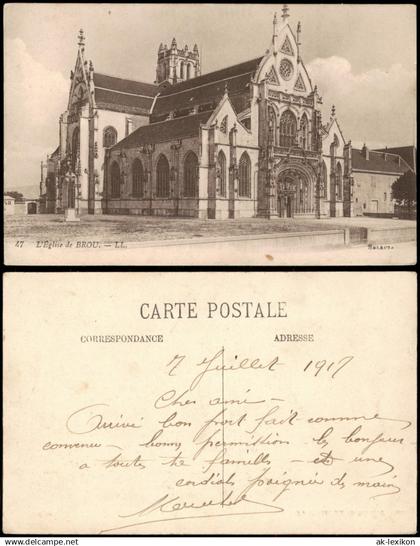 47 L'Église de BROU. — LL.
CARTE POSTALE
CORRESPONDANCE ADRESSE
7 Juillet 1917
Cher ami —
Arrivé bon port fait comme
convenu — bonne permission le bonjour
a toutes te familles — et une
cordiale poignee de main
© ak-lexikon.com
ak-lexikon.de